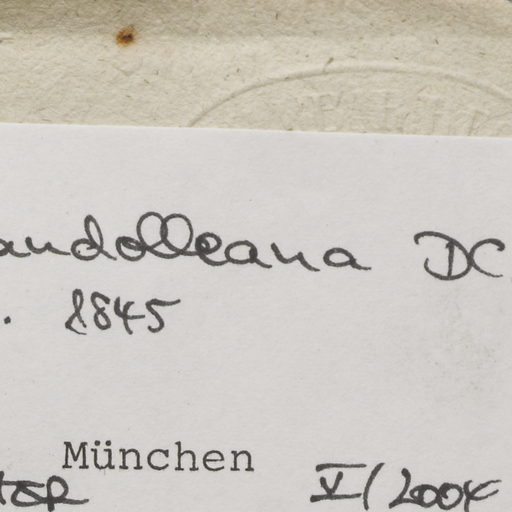 andolleana DC.
. 1845
München
V/2004